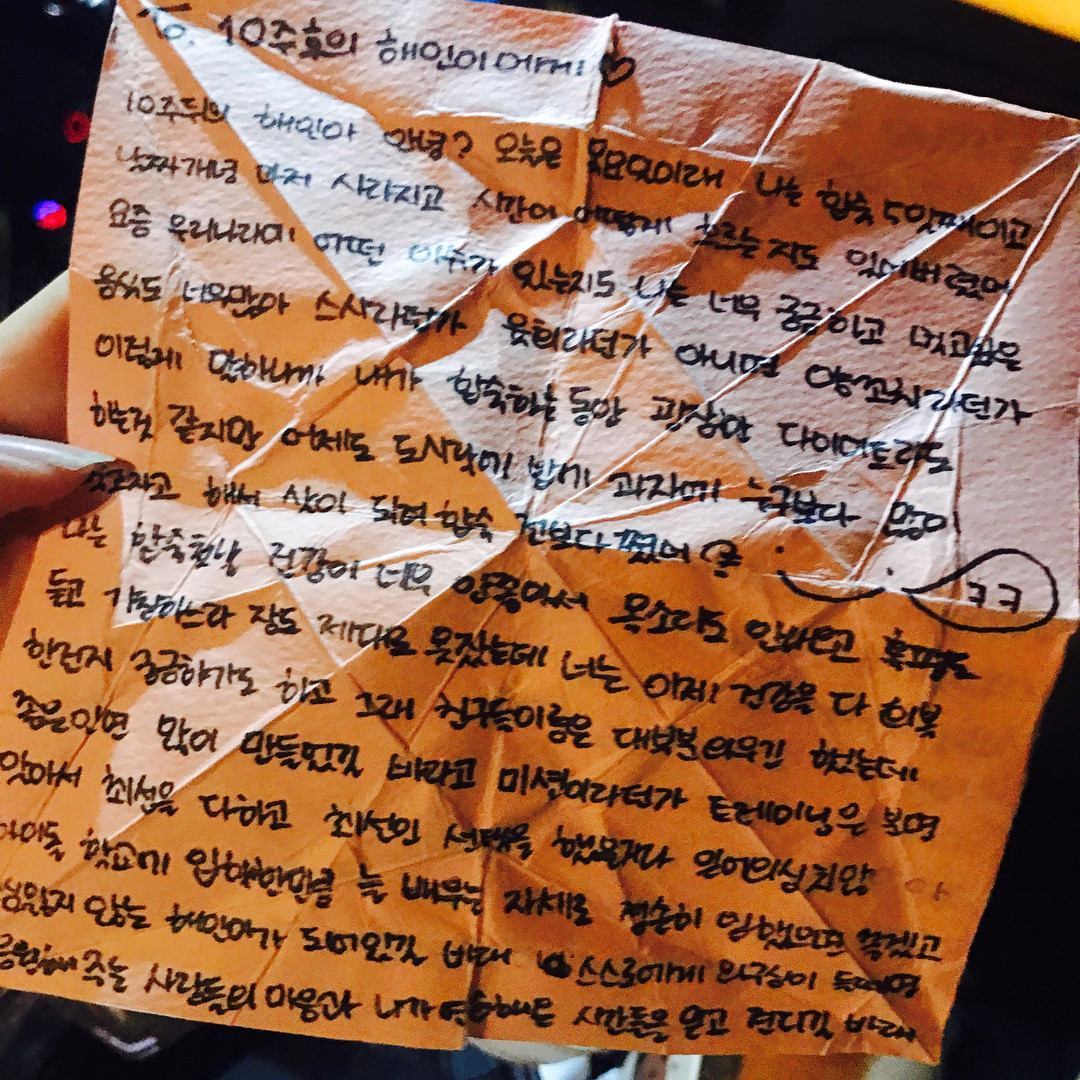 To. 10주후의 해인이에게♡
10주뒤의 해인아 안녕? 오늘은 목요일이래 나는 합숙 5일째이고
날짜개념 마저 사라지고 시간이 어떻게 흐르는지도 잊어버렸어
요즘 우리나라에 어떤 이슈가 있는지도 나는 너무 궁금하고 먹고싶은
음식도 너무많아 스시라던가 육회라던가 아니면 양꼬치라던가
이렇게 말하니까 내가 합숙하는 동안 굉장한 다이어트라도
하는것 같지만 어제도 도시락에 딸기 과자에 누구보다 많이
해서 살이 되려 합숙 전보다 쪘어 ㅋㅋ
나는 합숙첫날 긴장이 너무 목소리도 안나오고
듣고 기침하느라 잠도 제대로 못잤는데 너는 이제 건강을 다 회복
한건지 궁금하기도 하고 그래 친구들이랑은 대부분 어우긴 했는데
좋은인연 많이 만들었길 바라고 미션이라던가 트레이닝은 보면
있어서 최선을 다하고 최선인 선택을 했을거라 믿어의심치않아
아이돌 학교에 입학한만큼 늘 배우는 자세로 겸손히 임했으면 좋겠고
잃지 않는 해인이가 되어있길 바래 스스로에게 의구심이 들때면
응원해 주는 사람들의 마음과 너가 연습해온 시간들을 믿고 견디길 바래